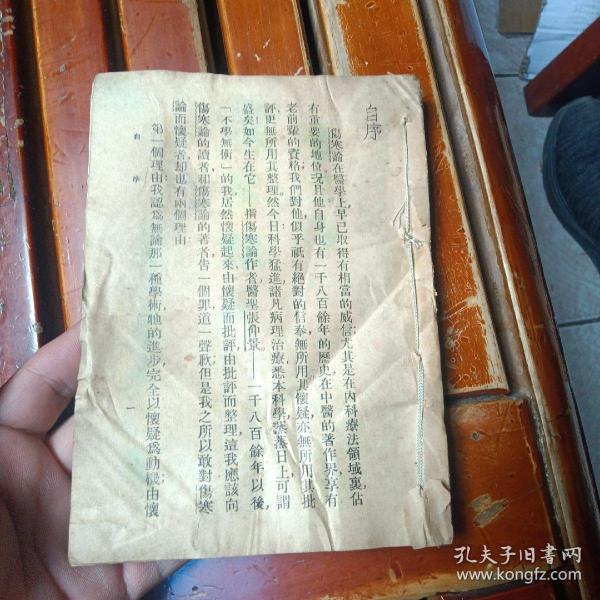 自序
傷寒論在醫學上早已取得有相當的威信尤其是在內科療法領域裏佔
有重要的地位況且他自身也有一千八百餘年的歷史在中醫的著作界享有
老前輩的資格我們對他似乎祇有絕對的信奉無所用其懷疑亦無所用其批
評更無所用其整理然今日科學猛進諸凡病理治療悉本科學蒸蒸日上可謂
盛矣如今生在它——指傷寒論作者醫聖張仲景——一千八百餘年以後，
「不學無術」的我居然懷疑起來由懷疑而批評由批評而整理這我應該向
傷寒論的讀者和傷寒論的著者告一個罪道一聲歉但是我之所以敢對傷寒
論而懷疑者却也有兩個理由：
第一個理由我認爲無論那一種學術牠的進步完全以懷疑爲動機由懷
自序
一
孔夫子旧书网
www.kongfz.com